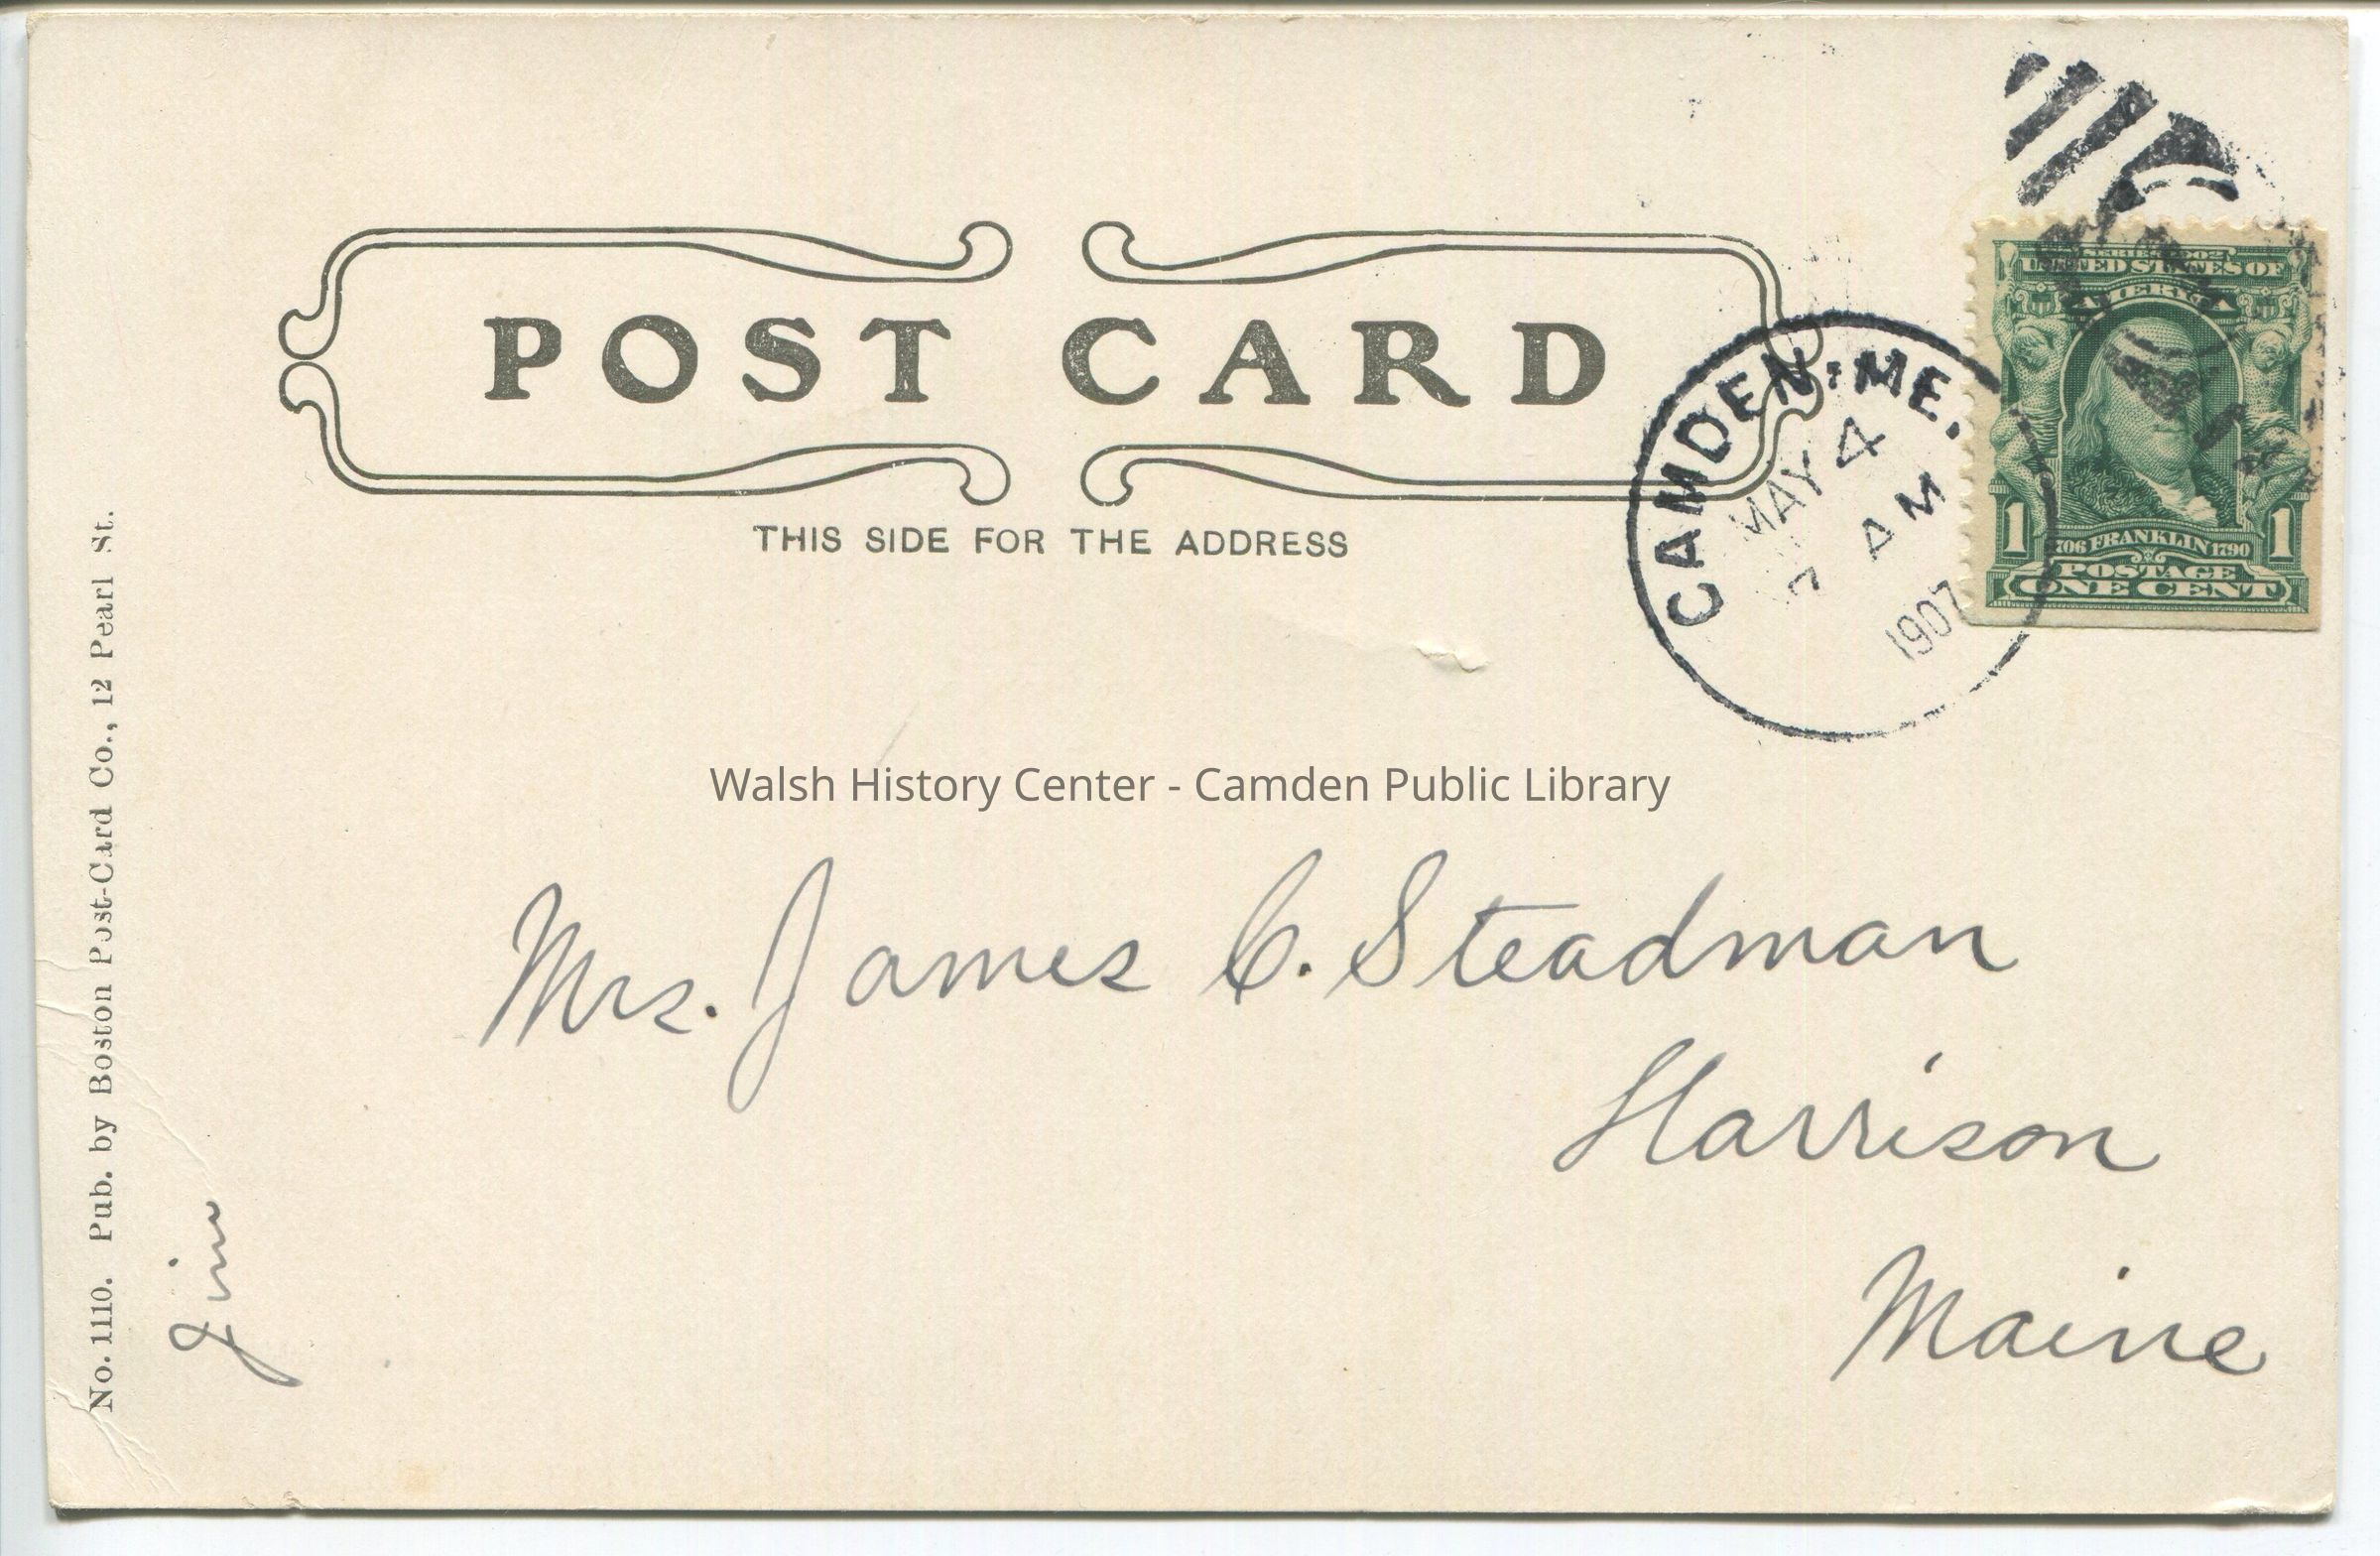 POST CARD
THIS SIDE FOR THE ADDRESS
CAMDEN, ME.
MAY 4
7 AM
1907
SERIES 1902
UNITED STATES OF
AMERICA
1 1706 FRANKLIN 1790 1
POSTAGE
ONE CENT
Walsh History Center - Camden Public Library
Mrs. James C. Steadman
Harrison
Maine
No. 1110. Pub. by Boston Post-Card Co., 12 Pearl St.
Jim